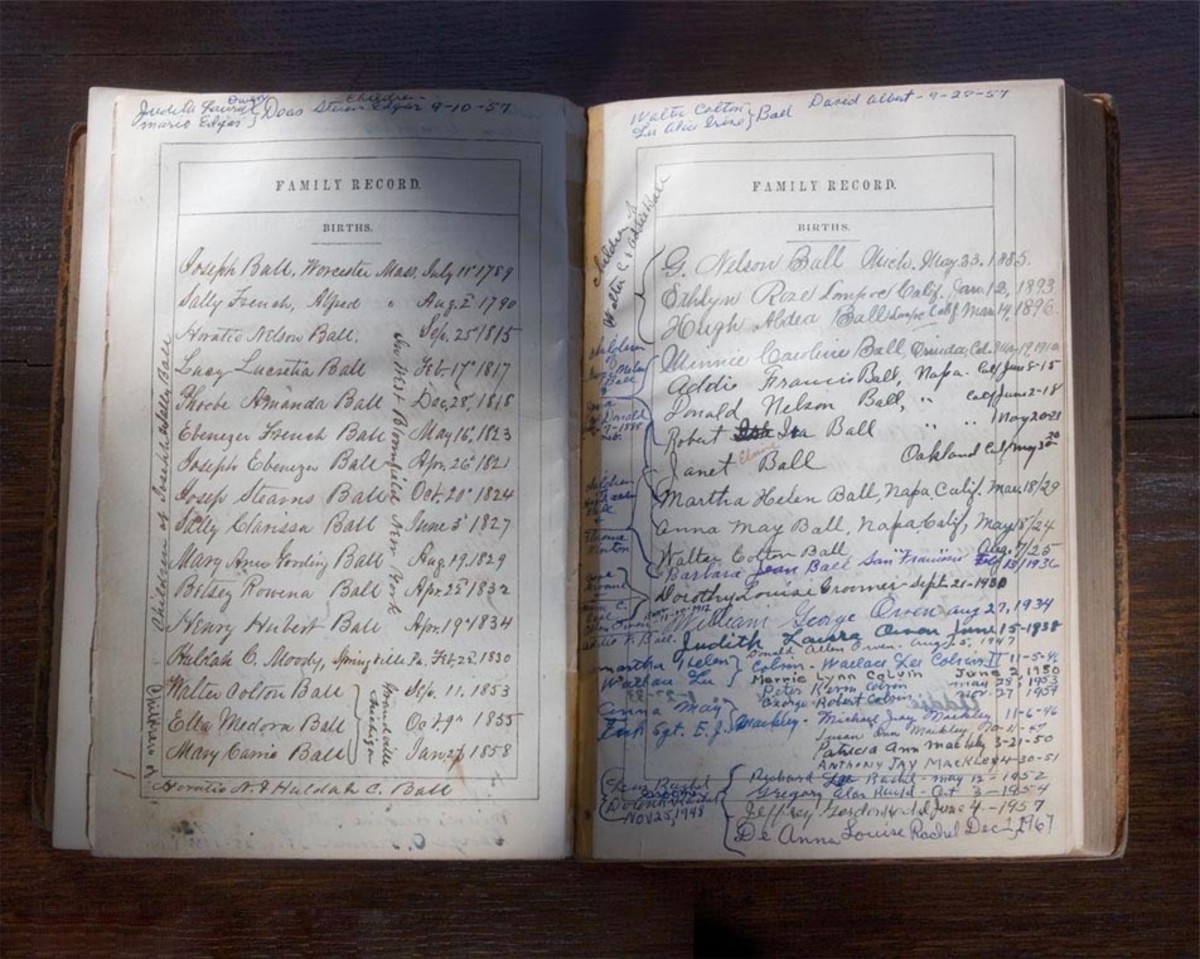 Judith Laura Owen } Doas Steven Edgar 9-10-57
Mario Edgar
Children
FAMILY RECORD.
BIRTHS.
Joseph Ball, Worcester Mass. July 11th 1789
Sally French, Alfred " Aug. 2d 1790
Horatio Nelson Ball. Sep. 25th 1815
Lucy Lucretia Ball Feb. 17th 1817
Phoebe Amanda Ball Dec. 28, 1818
Ebenezer French Ball May 16, 1823
Joseph Ebenezer Ball Apr. 26th 1821
Joseph Stearns Ball Oct. 20th 1824
Sally Clarissa Ball June 5th 1827
Mary Ann Gooding Ball Aug. 19. 1829
Betsey Rowena Ball Apr. 25th 1832
Henry Hubert Ball Apr. 19th 1834
Huldah C. Moody, Springville Pa. Feb. 22d 1830
Walter Colton Ball Sep. 11. 1853
Ella Medora Ball Oct. 9th 1855
Mary Carrie Ball Jan. 27 1858
Horatio N. & Huldah C. Ball
Children of Joseph & Sally Ball
In West Bloomfield New York
Children of
Grandville Michigan
Walter Colton } Ball David Albert - 9-29-57
Lee Alice Irene
FAMILY RECORD.
BIRTHS.
Children of Walter C. & Addie Ball
G. Nelson Ball Mich. May 23. 1885.
Ethlyn Roze Lompoc Calif. Jan. 12, 1893
Hugh Aldea Ball Lompoc Calif Mar. 19, 1896
Minnie Caroline Ball, Orinda, Cal.
Addie Francis Ball, Napa. Calif June 5-15
Donald Nelson Ball, " Calif June 2-18
Robert Ira Ball " " May 20-21
Janet Ball Oakland Calif May 30
Martha Helen Ball, Napa, Calif. Mar. 18/29
Anna May Ball, Napa Calif, May 8/24
Walter Colton Ball Aug. 7/25
Barbara Jean Ball San Francisco 1936
Dorothy Louise Groomer - Sept. 21-1930
William George Owen Aug 27, 1934
Judith Laura Owen June 15-1938
Donald Allen Owen - Aug 25, 1947
Martha Helen } Colvin - Wallace Lee Colvin II 11-5-46
Wallace Lee Merrie Lynn Colvin June 2, 1950
Peter Kerm Colvin May 28, 1953
George Robert Colvin Nov. 27 1954
Anna May
Sgt. E. J. Mackley - Michael Jay Mackley 11-6-46
Susan Ann Mackley
Patricia Ann Mackley 3-21-50
ANTHONY JAY MACKLEY 4-30-51
Richard Lee Rachel - May 12 - 1952
Gregory Alan Rachel - Oct 3 - 1954
NOV 25, 1948
Jeffrey Gordon June 4 - 1957
De Anna Louise Rachel Dec 1, 1961